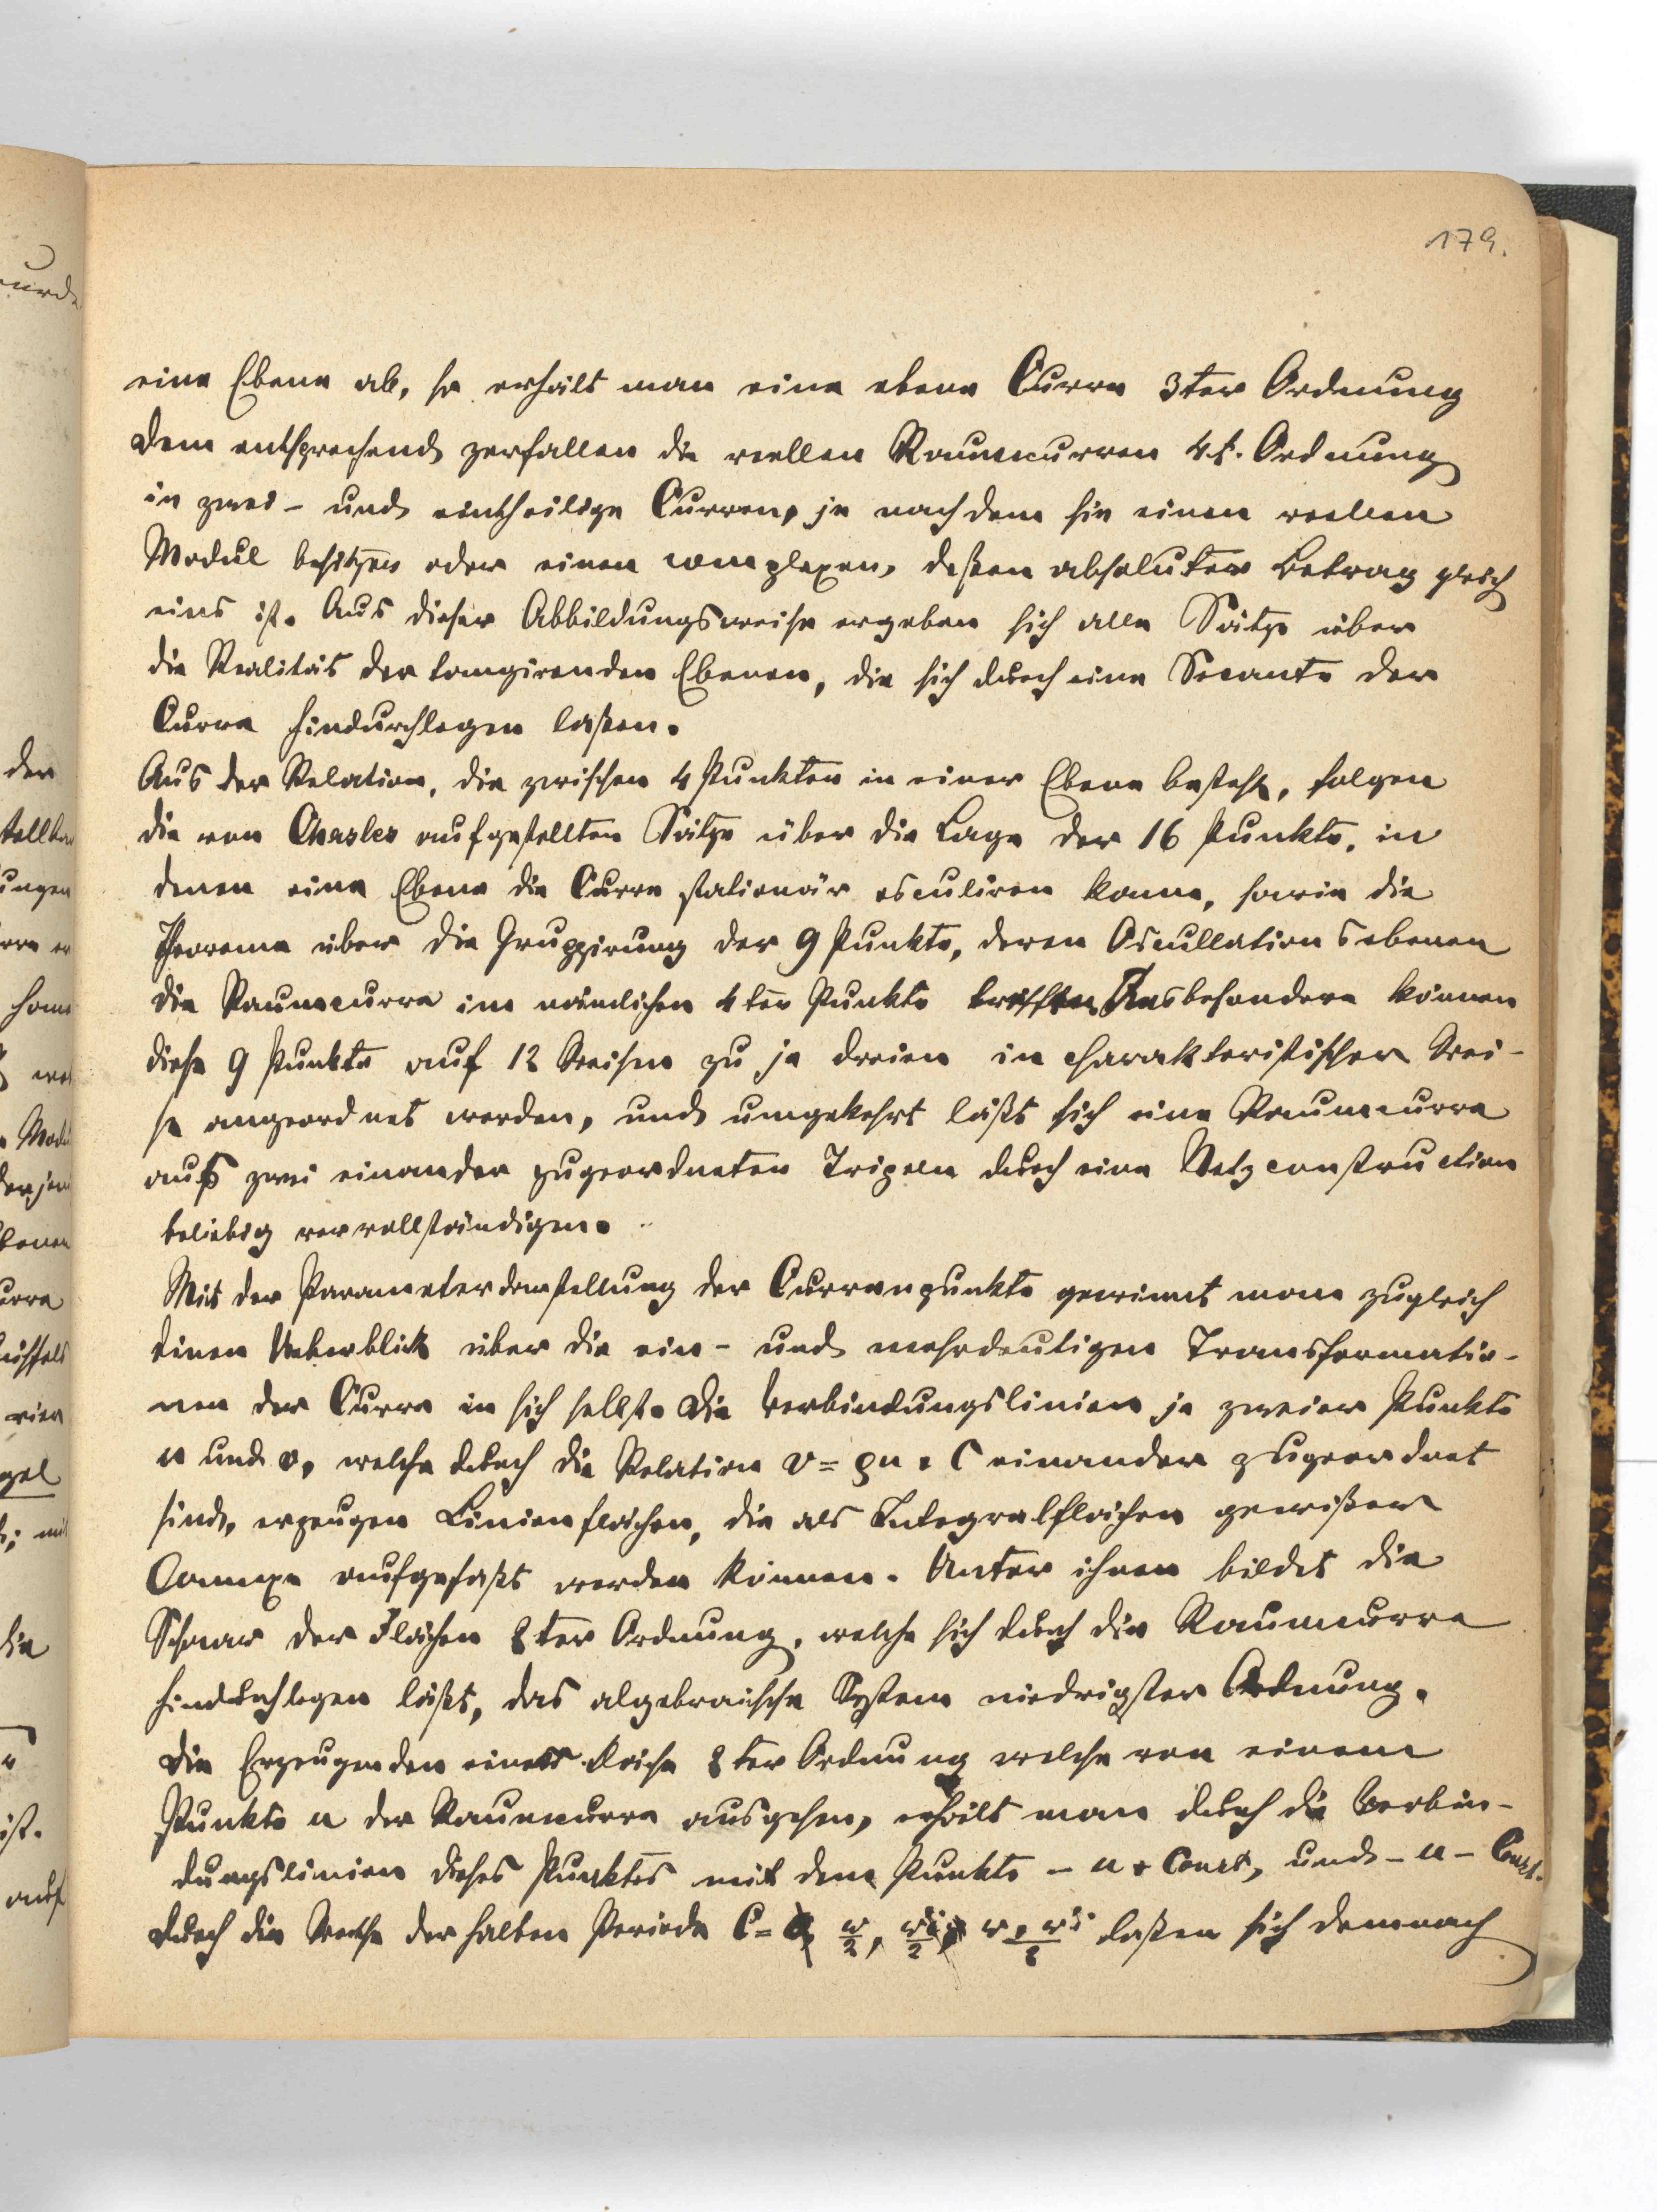 179.
eine Ebene ab, so erhält man eine ebene Curve 3ter Ordnung
dem entsprechend zerfallen die reellen Raumcurven 4.t. Ordnung
in zwei- und eintheilige Curven, je nachdem sie einen reellen
Modul besitzen oder einen complexen, deßen absoluter Betrag gleich
eins ist. Aus dieser Abbildungsweise ergeben sich alle Sätze über
die Realität der tangirenden Ebenen, die sich durch eine Secante der
Curve hindurchlegen laßen.
Aus der Relation, die zwischen 4 Punkten in einer Ebene besteht, folgen
die von Chasles aufgestellten Sätze über die Lage der 16 Punkte, in
denen eine Ebene die Curve stationär osculiren kann, sowie die
Theoreme über die Gruppirung der 9 Punkte, deren Oscullationsebenen
die Raumcurve im nämlichen 4ten Punkte treffen Insbesondere können
diese 9 Punkte auf 12 Weisen zu je dreien in charakteristischer Wei-
se angeordnet werden, und umgekehrt läßt sich eine Raumcurve
aus zwei einander zugeordneten Tripeln durch eine Netzconstruction
beliebig vervollständigen.
Mit der Parameterdarstellung der Curvenpunkte gewinnt man zugleich
einen Ueberblick über die ein- und mehrdeutigen Transformatio-
nen der Curve in sich selbst. Die Verbindungslinien je zweier Punkte
u und v, welche durch die Relation v = ϱu + C einander zugeordnet
sind, erzeugen Linienflächen, die als Integralflächen gewißer
Connexe aufgefaßt werden können. Unter ihnen bildet die
Schaar der Flächen 2ter Ordnung, welche sich durch die Raumcurve
hindurchlegen läßt, das algebraische System niedrigster Ordnung.
Die Erzeugenden einer Fläche 2ter Ordnung welche von einem
Punkte u der Raumcurve ausgehen, erhält man durch die Verbin-
dungslinien dieses Punktes mit dem Punkte - u + Const, und - u - Const.
Durch die Werthe der halben Periode C = w/2, w'/2, laßen sich demnach